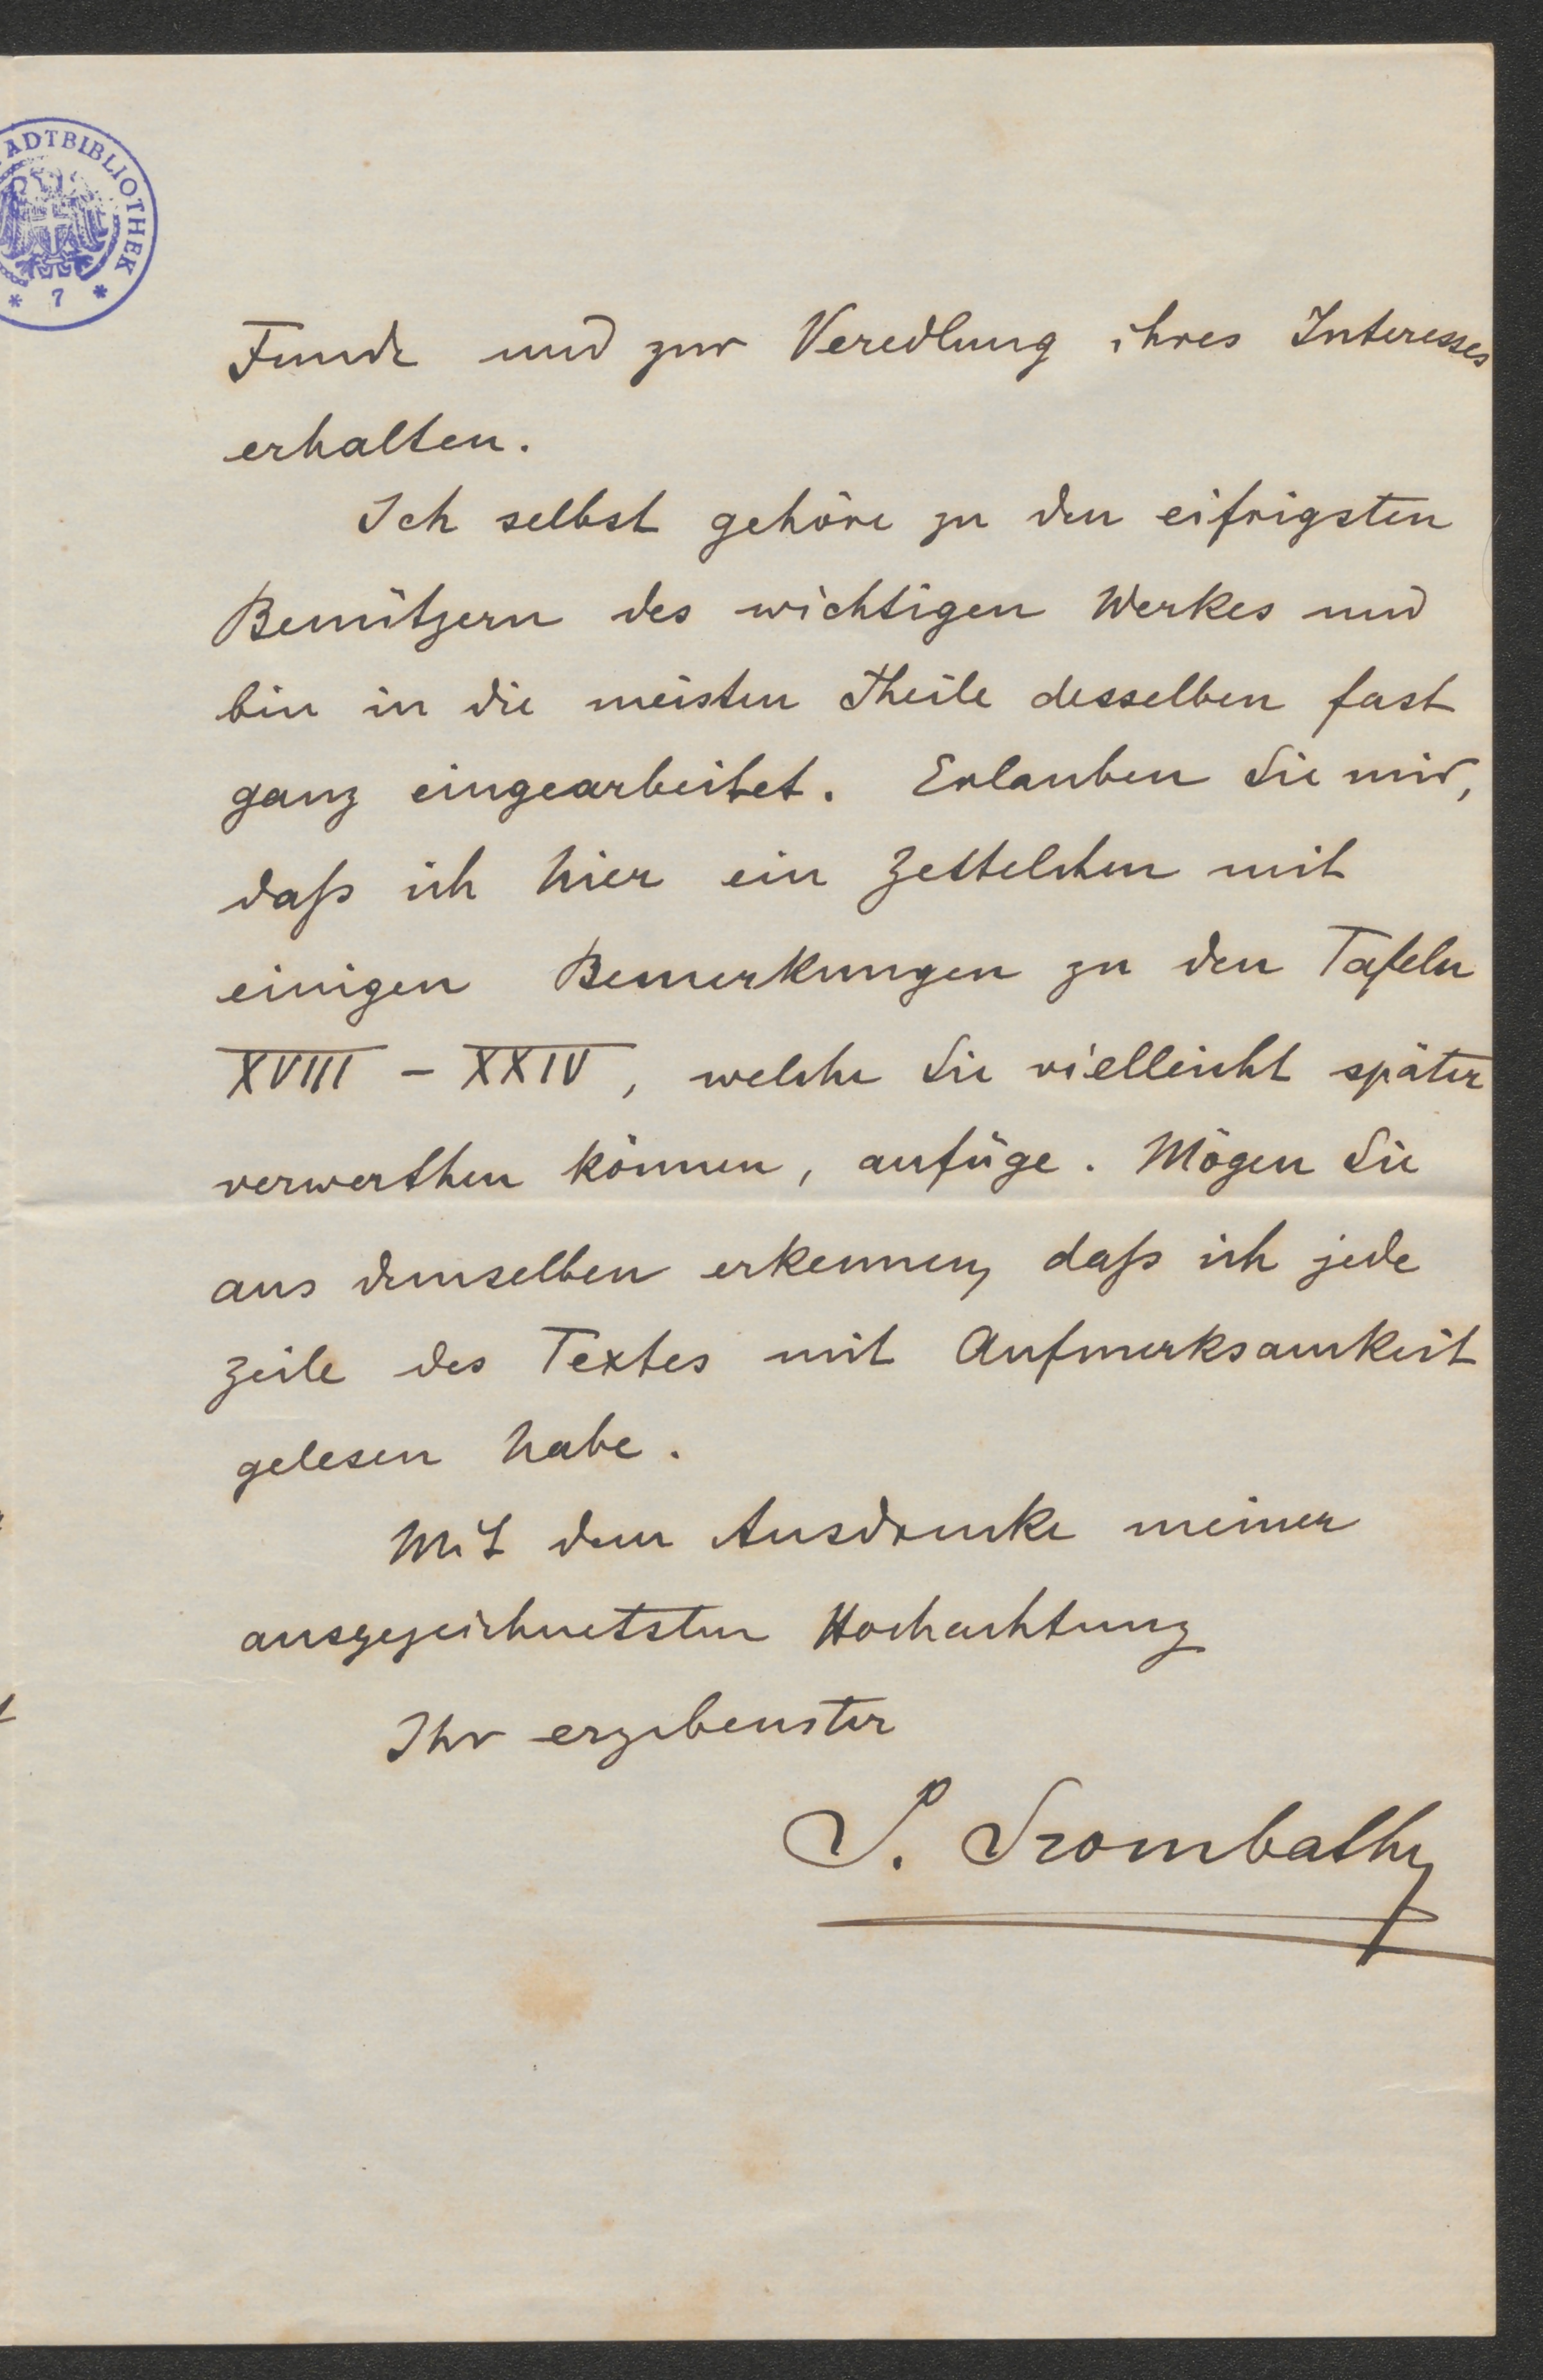 ADTBIBLIOTHEK
* 7 *
Funde und zur Veredlung ihres Interesses
erhalten.
Ich selbst gehöre zu den eifrigsten
Benützern des wichtigen Werkes und
bin in die meisten Theile desselben fast
ganz eingearbeitet. Erlauben Sie mir,
daß ich hier ein Zettelchen mit
einigen Bemerkungen zu den Tafeln
XVIII – XXIV, welche Sie vielleicht später
verwerthen können, anfüge. Mögen Sie
aus demselben erkennen, daß ich jede
Zeile des Textes mit Aufmerksamkeit
gelesen habe.
Mit dem Ausdrucke meiner
ausgezeichnetsten Hochachtung
Ihr ergebenster
J. Szombathy